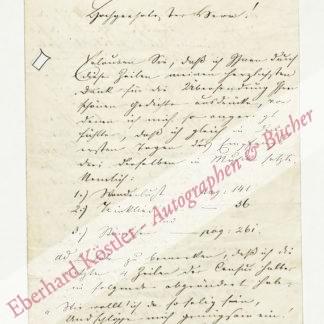 Hochgeehrtester Herr!
Erlauben Sie, daß ich Ihnen durch
diese Zeilen meinen herzlichsten
Dank für die Übersendung Ihrer
schönen Gedichte ausdrücke, von
denen ich mich so angeregt
fühlte, daß ich gleich in den
ersten Tagen des
drei derselben in Musik setzte.
Nemlich:
1.) Wanderlust pag. 141
2.) Trinklied — 36
3.) pag. 261.
ad zu bemerken, daß ich die
4 Zeilen der Censur halber
in folgende abgeändert habe:
"Nie wollt ich da so selig sein,
Und
Eberhard Köstler - Autographen & Bücher